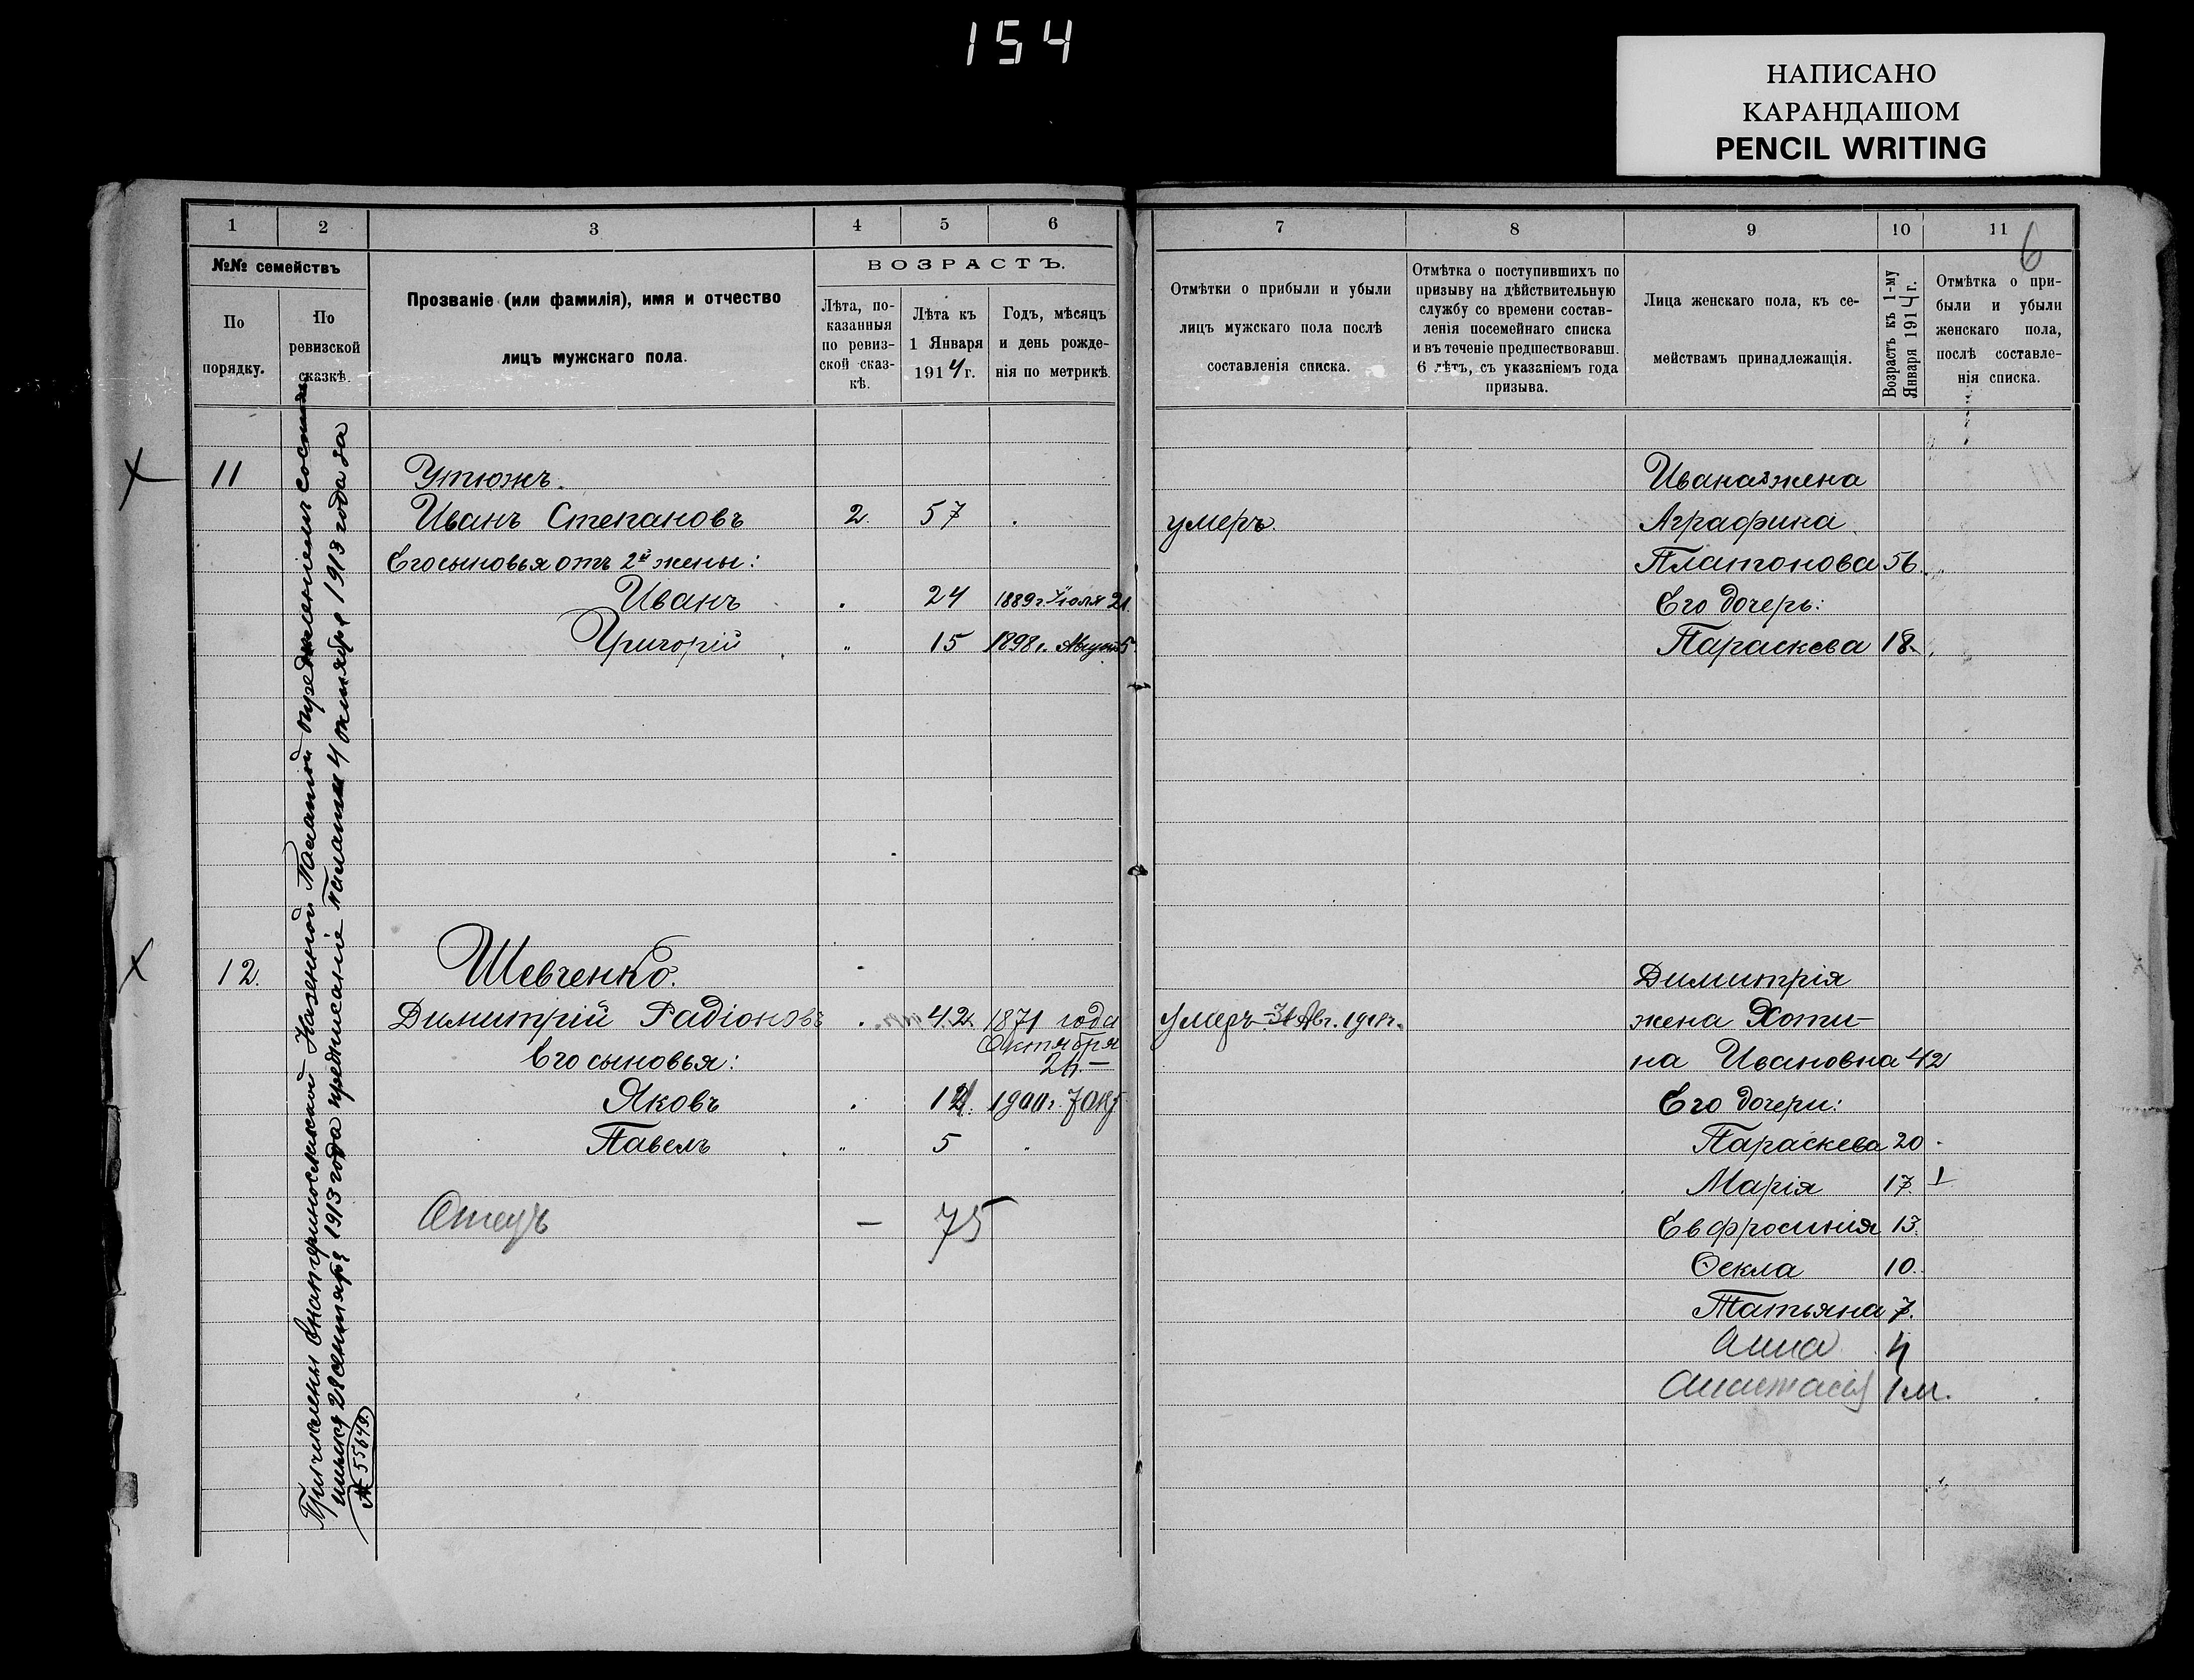 154
НАПИСАНО
КАРАНДАШОМ
PENCIL WRITING
1 2 3 4 5 6
№№ семействъ
По порядку.
По ревизской сказкѣ.
Прозваніе (или фамилія), имя и отчество
лицъ мужскаго пола.
ВОЗРАСТЪ.
Лѣта, по-
казанныя
по ревиз-
ской сказ-
кѣ.
Лѣта къ
1 Января
1914 г.
Годъ, мѣсяцъ
и день рожде-
нія по метрикѣ.
7 8 9 10 11
6
Отмѣтки о прибыли и убыли
лицъ мужскаго пола послѣ
составленія списка.
Отмѣтка о поступившихъ по
призыву на дѣйствительную
службу со времени состав-
ленія посемейнаго списка
и въ теченіе предшествовавш.
6 лѣтъ, съ указаніемъ года
призыва.
Лица женскаго пола, къ се-
мействамъ принадлежащія.
Возрастъ къ 1-му
Января 1914 г.
Отмѣтка о при-
были и убыли
женскаго пола,
послѣ составле-
нія списка.
Причислены Екатеринославской Казенной Палатой
28 сентября 1913 года предписаніе Палаты 4 октября 1913 года за
№ 55649.
11 Утюжъ.
Иванъ Степановъ 2. 57
Его сыновья отъ 2й жены:
Иванъ 24 1889 г. Іюля 21
Григорій " 15 1898 г. Август 5
умеръ.
Ивана жена
Аграфина
Платонова 56.
Его дочерь:
Параскева 18.
12. Шевченко.
Димитрій Радіоновъ 42 1871 года
Октября
24.
Его сыновья:
Яковъ 1900 г. 7 окт
Павелъ " 5
Отецъ — 75
умеръ Авг. 1918 г.
Димитрія
жена Хоти-
на Ивановна 42
Его дочери:
Параскева 20.
Марія 17. 1
Евфросинія 13.
Ѳекла 10.
Татьяна 7.
Анна 4
Анастасія 1 м.